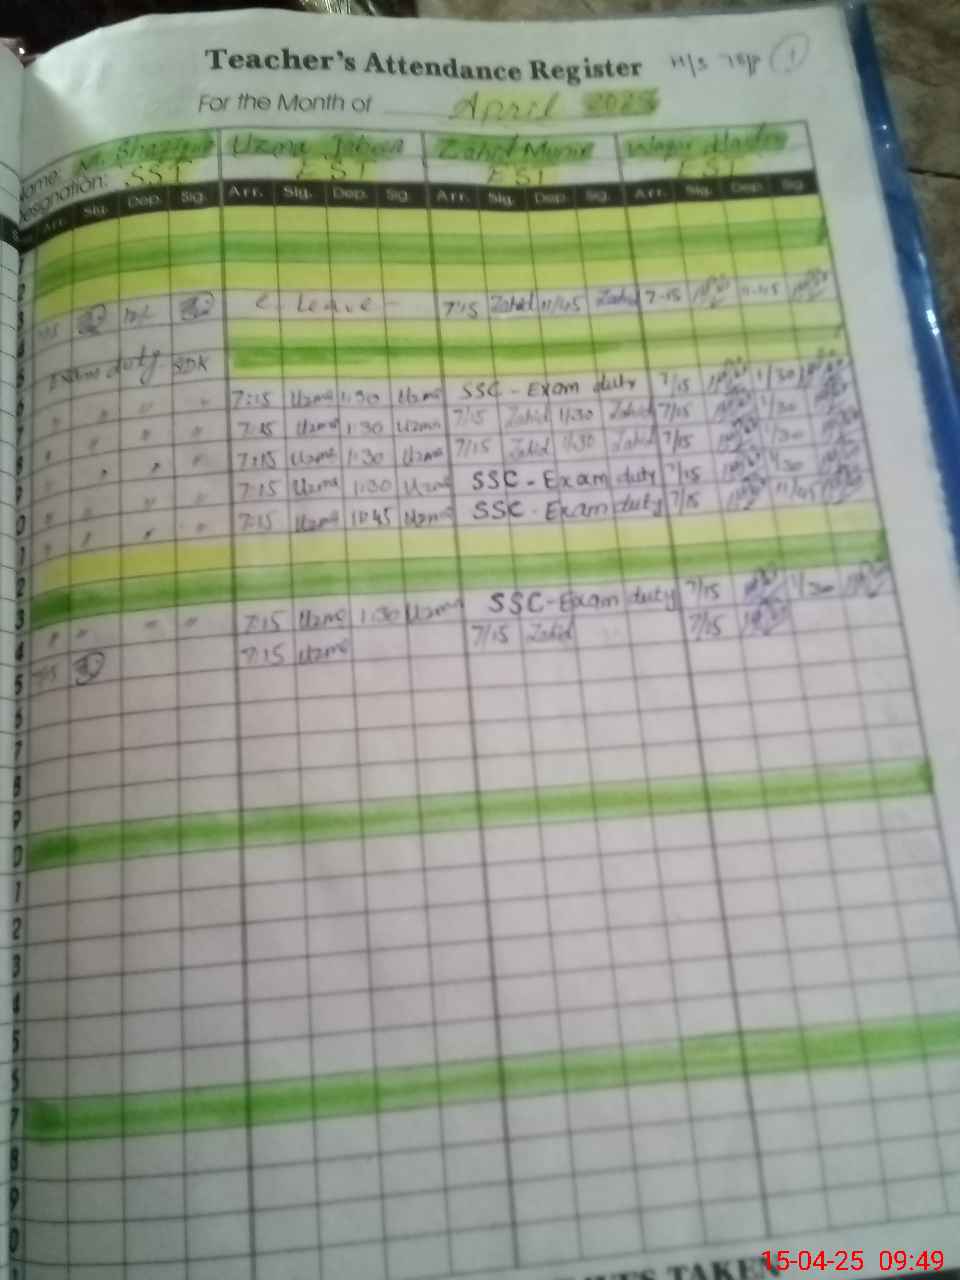 Teacher's Attendance Register
For the Month of April 2025
Name: Uzma Jabeen Zahid Munir
Designation: SST EST EST EST
Arr. Sig. Dep. Sig. Arr. Sig. Dep. Sig. Arr. Sig. Dep. Sig. Arr. Sig. Dep. Sig.
C. Leave - 7:15 Zahid 11/45 Zahid 7-15 11-45
Exam duty SDK
" " " " 7:15 Uzma 1:30 Uzma SSC - Exam duty 7/15 1/30
" " " " 7:15 Uzma 1:30 Uzma 7/15 Zahid 1/30 Zahid 7/15 1/30
" " " " 7:15 Uzma 1:30 Uzma 7/15 Zahid 1/30 Zahid 7/15 1/30
" " " " 7:15 Uzma 1:30 Uzma SSC - Exam duty 7/15 1/30
" " " " 7:15 Uzma 11:45 Uzma SSC - Exam duty 7/15 11/45
" " " " 7:15 Uzma 1:30 Uzma SSC - Exam duty 7/15 1/30
7:15 7:15 Uzma 7/15 Zahid 7/15
TAKEN
15-04-25 09:49